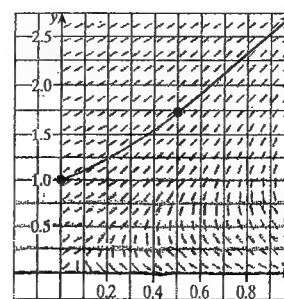 y
2.5
2.0
1.5
1.0
0.5
0.2 0.4 0.6 0.8